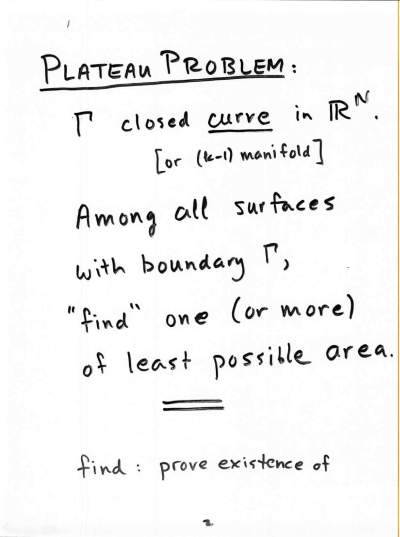 PLATEAU PROBLEM:
Γ closed curve in ℝᴺ.
[or (k-1) manifold]
Among all surfaces
with boundary Γ,
"find" one (or more)
of least possible area.
find: prove existence of
2